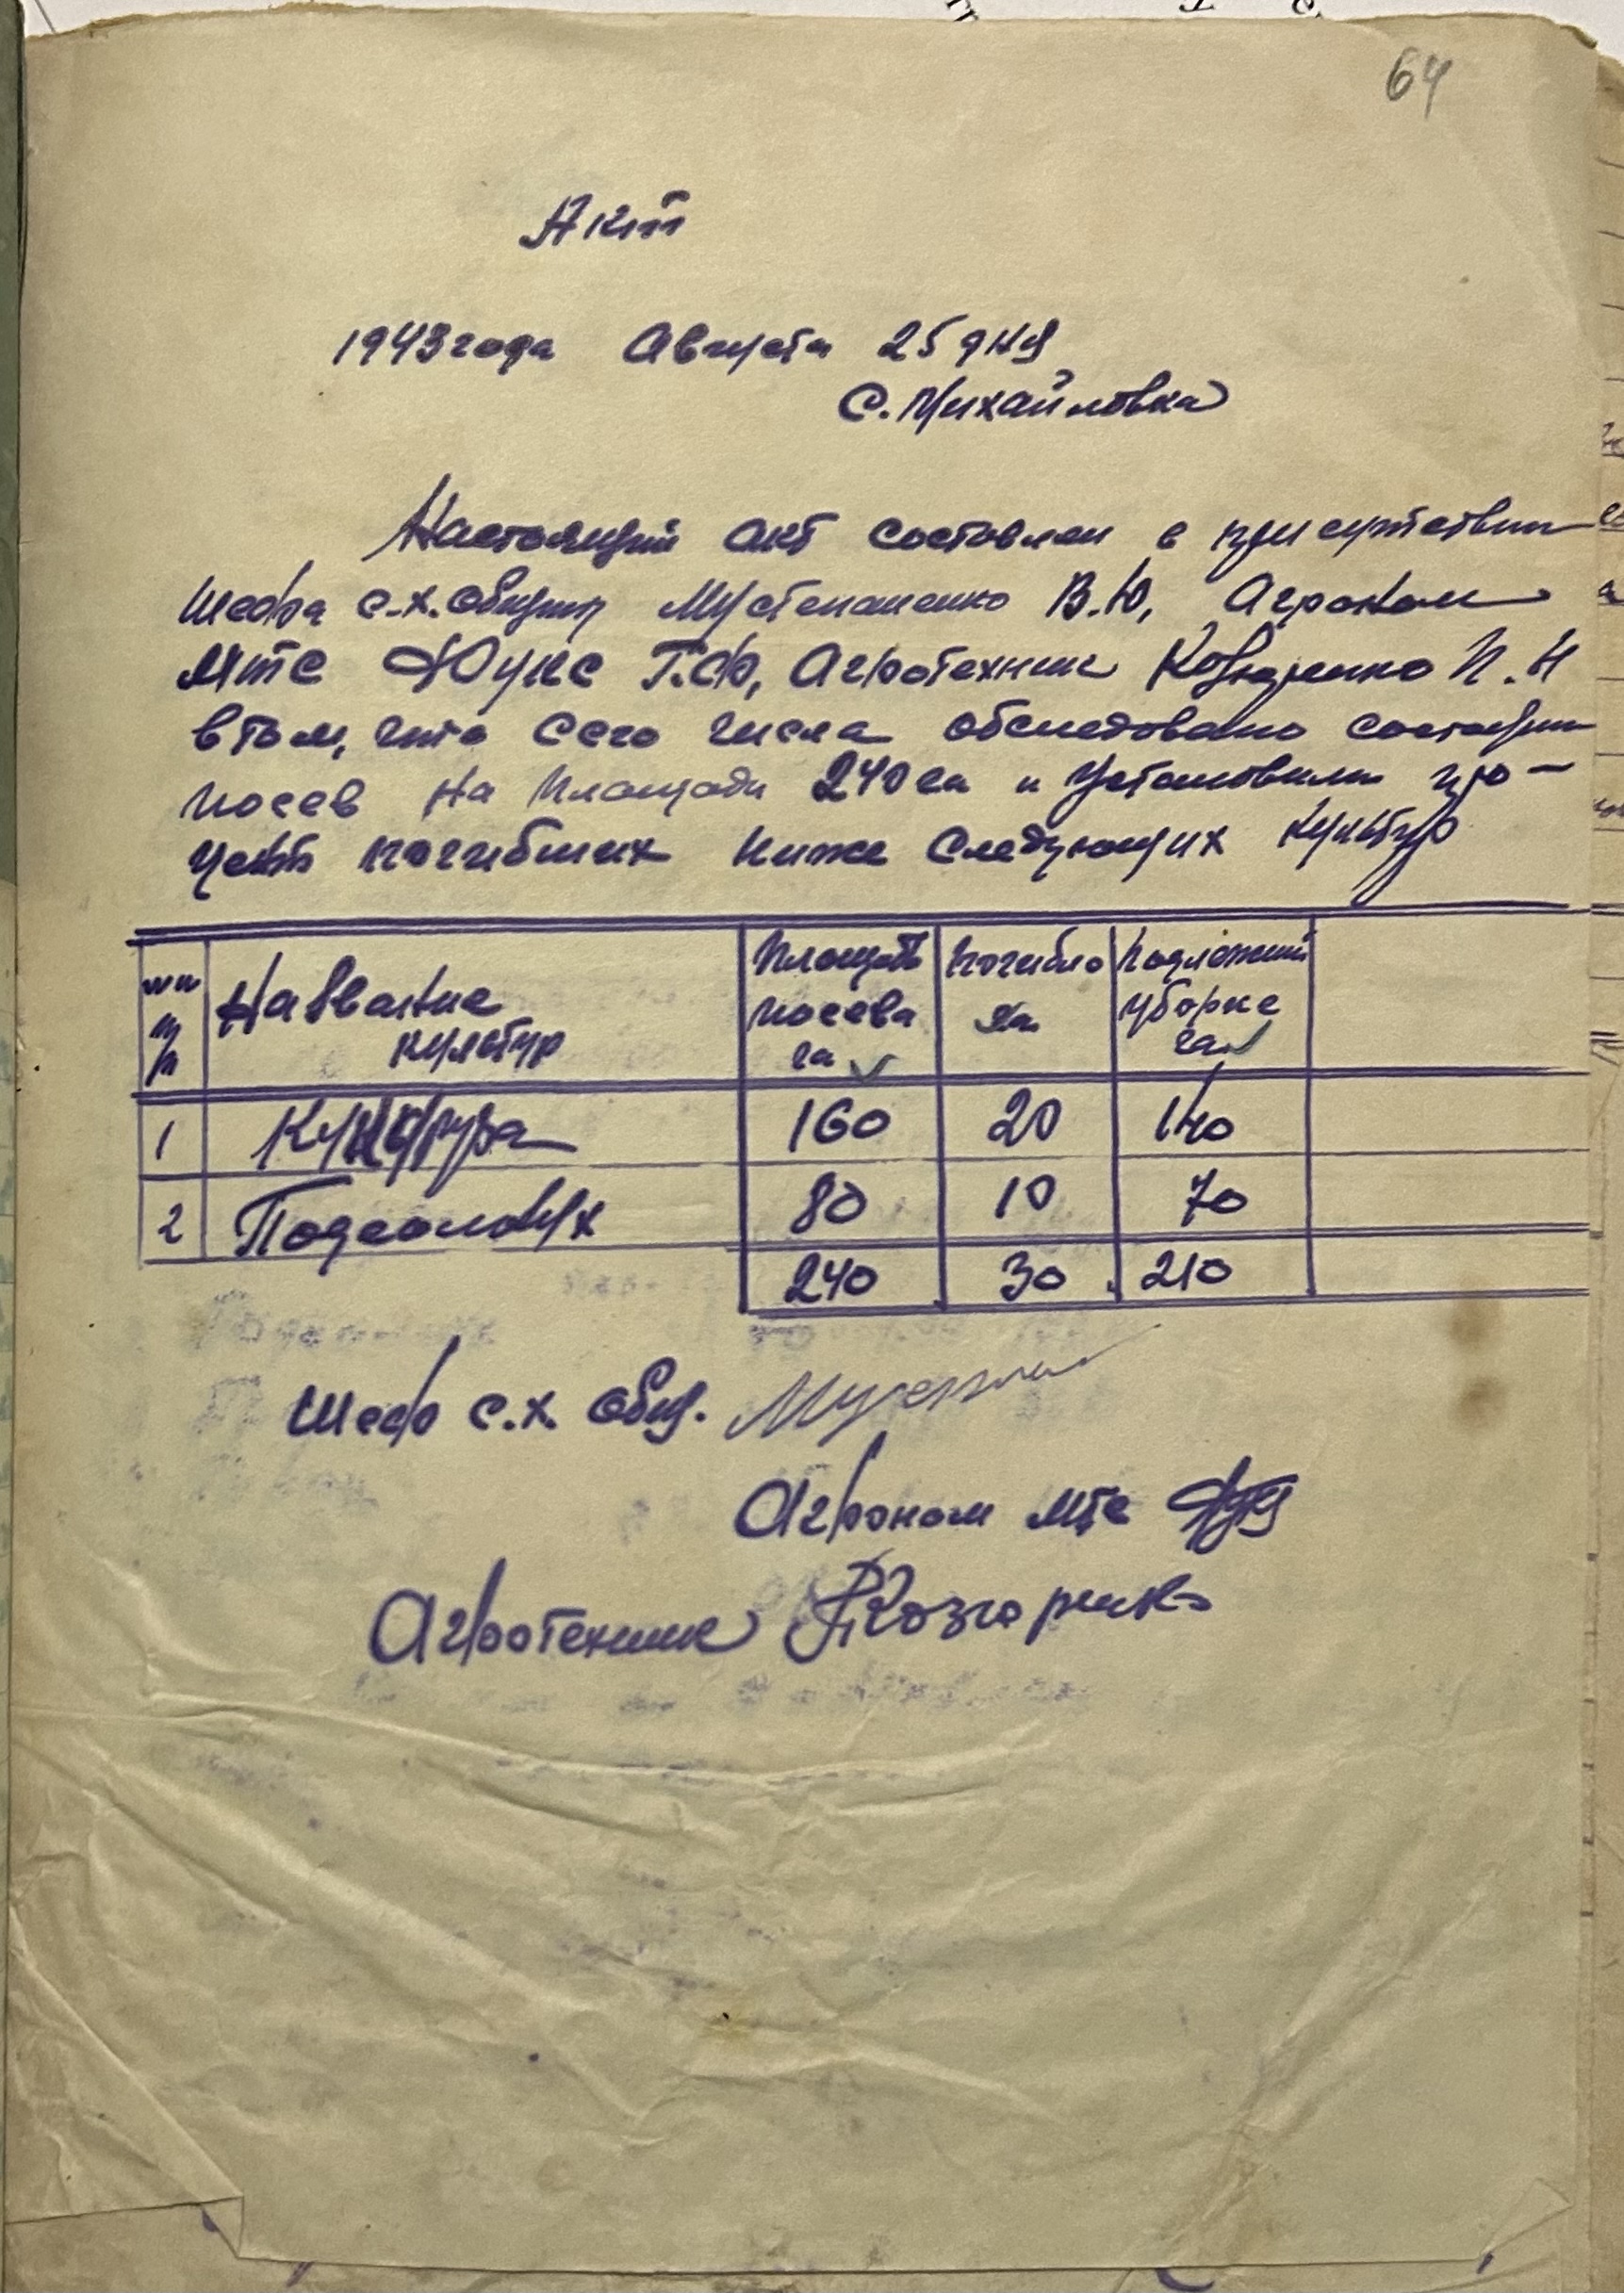 64
Акт
1943 года Августа 25 дня
С. Михайловка
Настоящий акт составлен в присутствии
Шефа с.х. общины В.Ю, Агроном
Мтс Т.Ф, Агротехник П.Н
в том, что сего числа обследовано
посев на площади 240 га и Установили про-
цент погибших ниже следующих культур
Название культур
Площадь посева га
погибло га
Подлежит уборке га
1 Кукуруза 160 20 140
2 Подсолнух 80 10 70
240 30 210
Шеф с.х. общ.
Агроном мтс
Агротехник